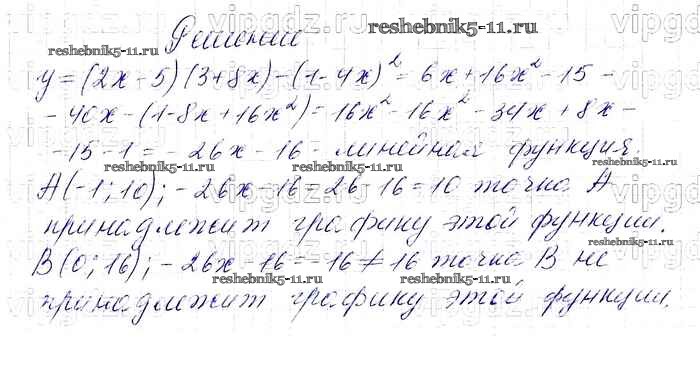 Решение
y = (2x - 5)(3 + 8x) - (1 - 4x)² = 6x + 16x² - 15 -
- 40x - (1 - 8x + 16x²) = 16x² - 16x² - 34x + 8x -
- 15 - 1 = - 26x - 16 - линейная функция.
A(-1; 10); - 26x - 16 = 26 - 16 = 10 точка A
принадлежит графику этой функции.
B(0; 16); - 26x - 16 = - 16 ≠ 16 точка B не
принадлежит графику этой функции.
reshebnik5-11.ru
reshebnik5-11.ru
reshebnik5-11.ru
reshebnik5-11.ru
reshebnik5-11.ru
reshebnik5-11.ru
reshebnik5-11.ru
reshebnik5-11.ru